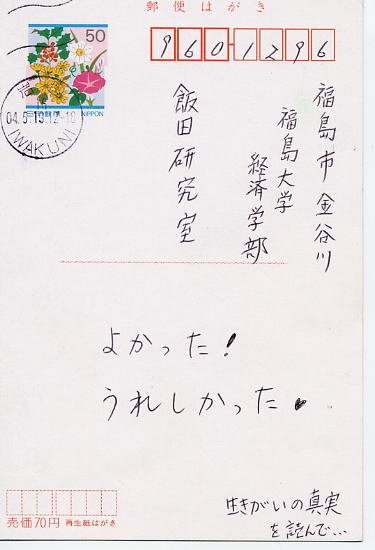 郵便はがき
50
日本郵便 NIPPON
04.5.15.12-18
IWAKUNI
960-1296
福島市金谷川
福島大学
経済学部
飯田研究室
よかった!
うれしかった♥
生きがいの真実
を読んで…
売価70円 再生紙はがき